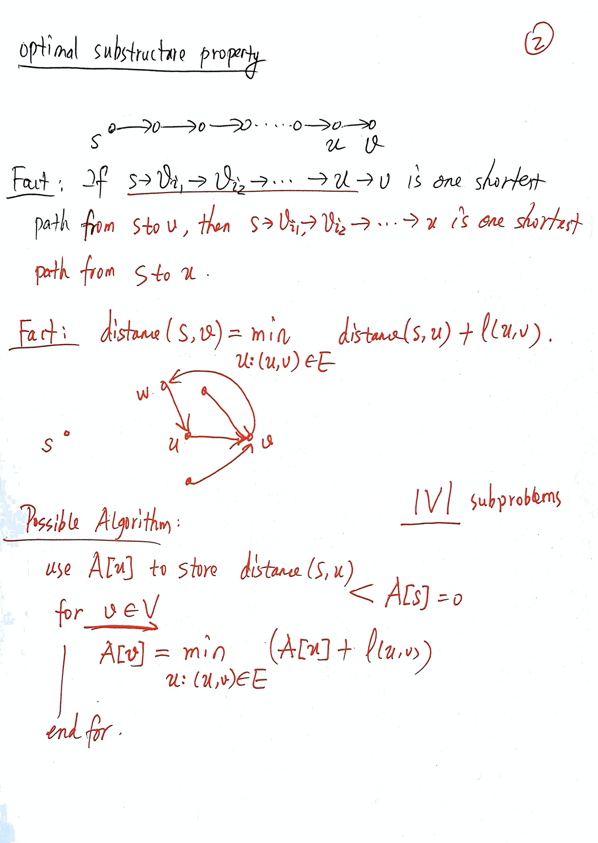 optimal substructure property
2
s u v
Fact: If s→v_{i1}→v_{i2}→ ··· →u→v is one shortest
path from s to v, then s→v_{i1}→v_{i2}→ ··· →u is one shortest
path from s to u.
Fact: distance(s,v) = min distance(s,u) + l(u,v).
u:(u,v)∈E
w
s u v
|V| subproblems
Possible Algorithm:
use A[u] to store distance(s,u)
< A[s]=0
for v∈V
A[v] = min (A[u] + l(u,v))
u:(u,v)∈E
end for.